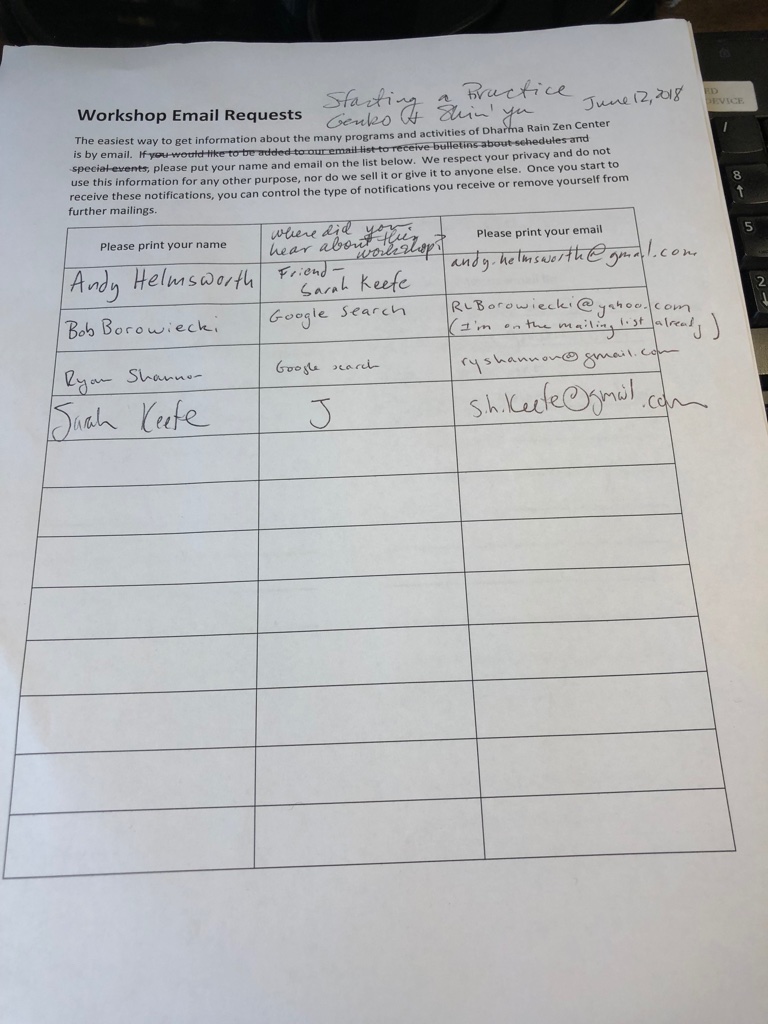 Starting a Practice
Workshop Email Requests Genko & Shin'yu June 12, 2018
The easiest way to get information about the many programs and activities of Dharma Rain Zen Center
is by email. If you would like to be added to our email list to receive bulletins about schedules and
special events, please put your name and email on the list below. We respect your privacy and do not
use this information for any other purpose, nor do we sell it or give it to anyone else. Once you start to
receive these notifications, you can control the type of notifications you receive or remove yourself from
further mailings.
Please print your name
where did you
hear about this
workshop?
Please print your email
Andy Helmsworth
Friend –
Sarah Keefe
andy.helmsworth@gmail.com
Bob Borowiecki
Google Search
RLBorowiecki@yahoo.com
(I'm on the mailing list already)
Ryan Shannon
Google search
ryshannon@gmail.com
Sarah Keefe
J
s.h.Keefe@gmail.com
8
5
2